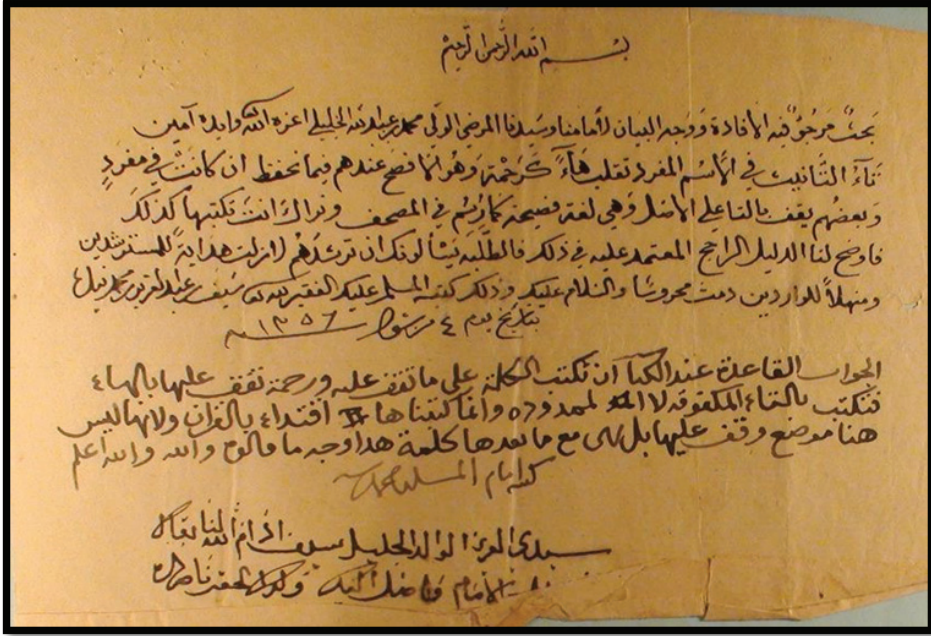 بسم الله الرحمن الرحيم
بحثٌ مَرجُوٌّ فيه الإفادة ووجه البيان لإمامنا وسيدنا المرضي الولي محمد بن عبدالله الخليلي اعزه الله وايده آمين
تَاءُ التَّانيث في الأسْم المفرد تقلب هَآءً كَرَحْمَة وَهُوَ الافصح عندهم فيما نحفظ ان كانَتْ في مفردٍ
وَبعضُهم يقف بالتا على الاصل وَهي لغة فصيحة كما رُسِمَ في المصحف ونراك انتَ تكتبها كذلكَ
فاوضح لنا الدليل الراجح المعتمد عليه في ذلك فالطلبَة يَسْألونك ان ترشدَهُم لا زلت هدايةً للمسترشدين
ومنهلاً للواردين دمت محروسًا والسّلام عليك وذلك كتبه المسلم عليك الفقير لله سَيف بن عبدالعزيز بن محمد
بتاريخ يوم ٤ من شوال ١٣٥٦
الجواب القاعدة عند الكتاب ان تكتب الكلمة على ما تقف عليه ورحمة تقف عليها بالهاء
فتكتب بالتاء المكفوفه لا الممدوده وانما كتبناها اقتداء بالقران ولانها ليس
هنا موضع وقف عليها بل هى مع ما بعدها كلمة هذا وجه ما قالوه والله والله اعلم
كتبه امام المسلمين
سيدى العزيز الوالد الجليل سيف ادام الله لنا بقاك
الامام فاضل اليك ولدك الحقير ناصر